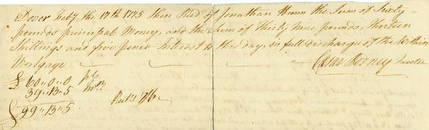 Dover July the 17th 1775 then Rec'd of Jonathan the Sum of Sixty
pounds principal Money, and the Sum of Thirty nine pounds, thirteen
Shillings and five pence Interest to this day, in full discharge of the within
Mortgage
£ 60 " 0 " 0
39 " 13 " 5
£ 99 " 13 " 5